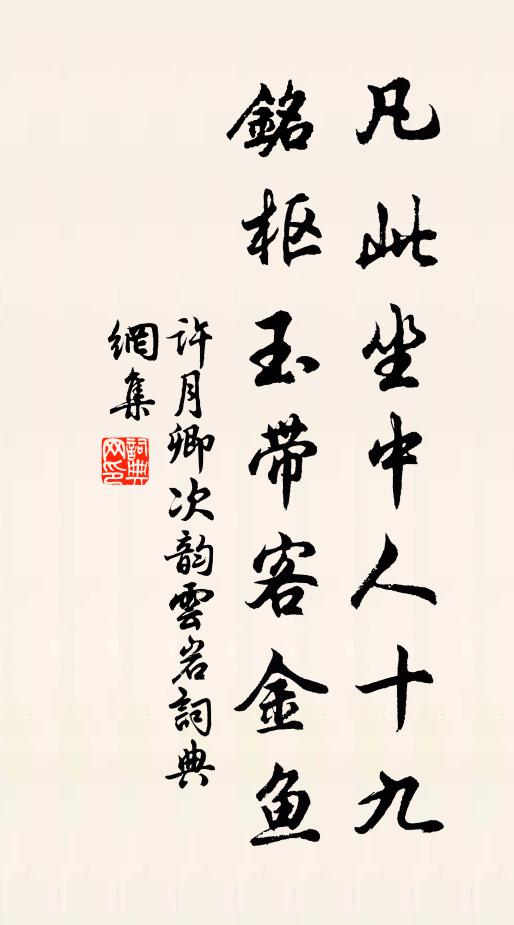 凡此坐中人十九
銘枢玉带客金鱼
許月卿次韵雲岩詞典
網集
詞典网印